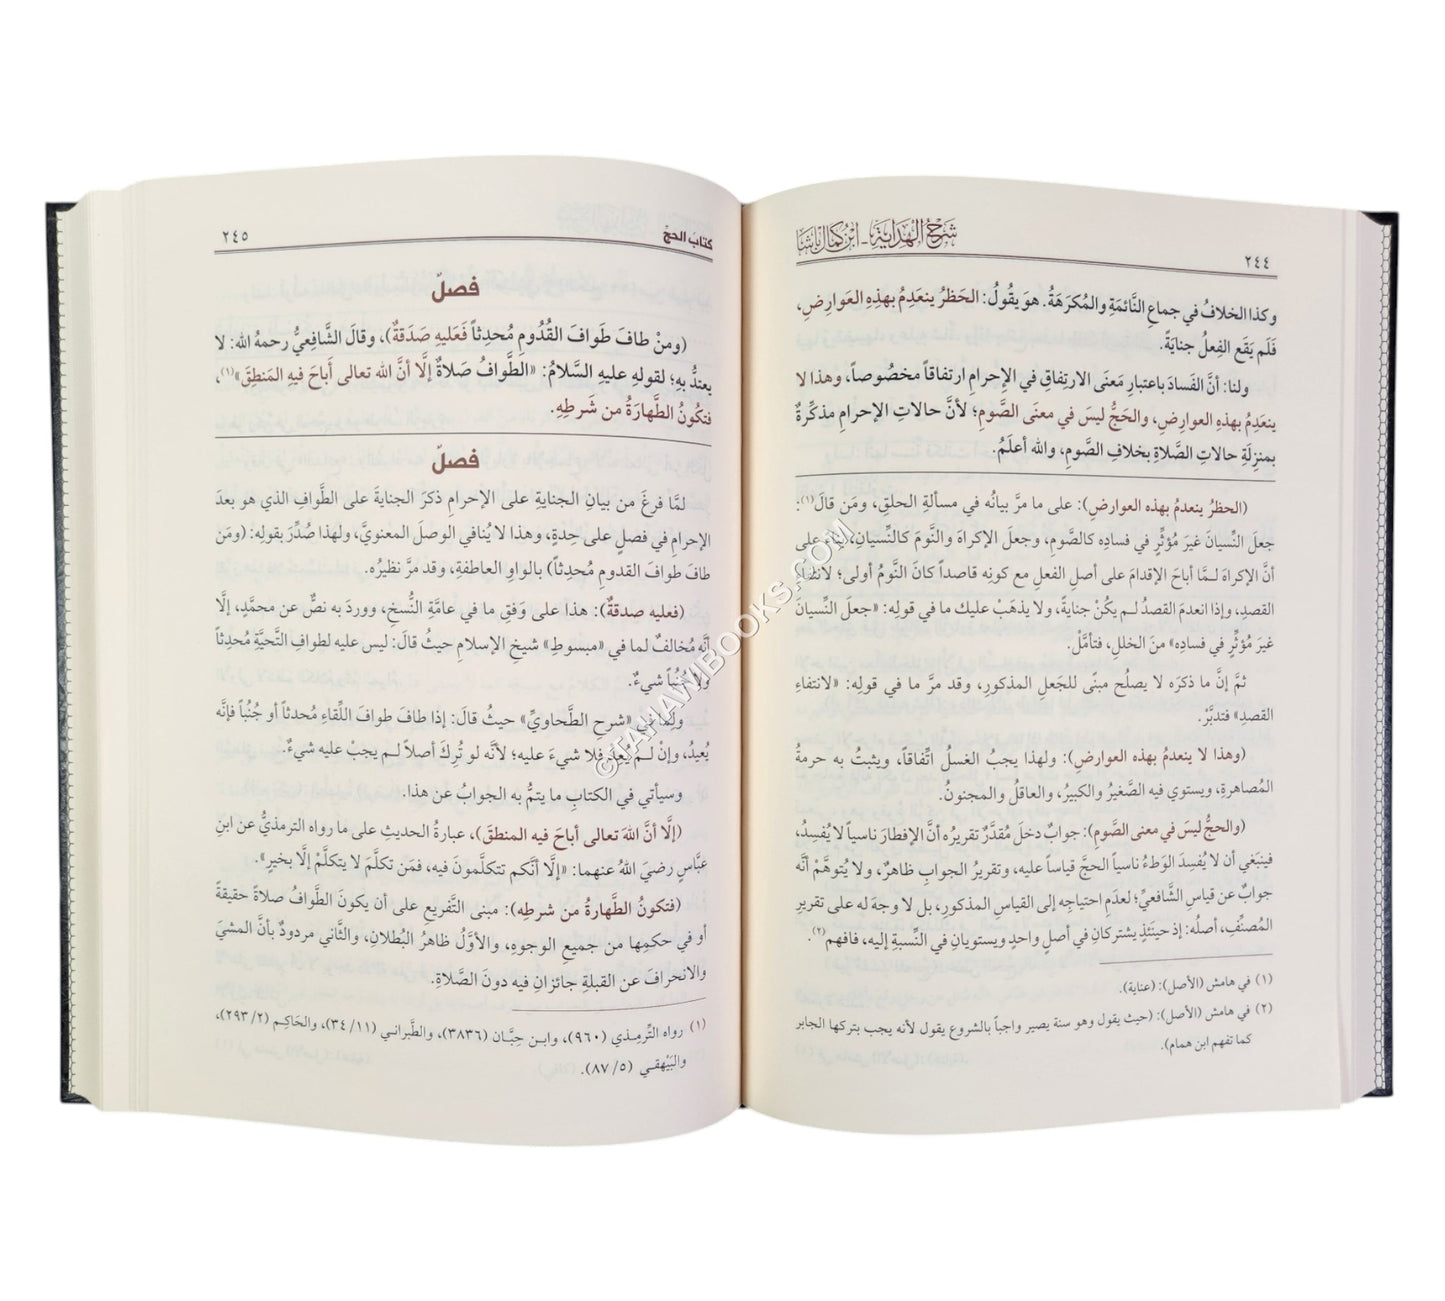 شرح الهداية - ابن كمال باشا
٢٤٤
وكذا الخلافُ في جماعِ النَّائمَةِ والمُكرَهَةُ. هوَ يقُولُ: الحَظرُ ينعَدِمُ بهذِهِ العَوارِضِ،
فَلَم يَقَعِ الفِعلُ جنايَةً.
ولنا: أنَّ الفَسادَ باعتبارِ مَعنَى الارتِفاقِ في الإحرامِ ارتفاقاً مخصُوصاً، وهذا لا
ينعَدِمُ بهذِهِ العوارِضِ، والحَجُّ ليسَ في معنَى الصَّومِ؛ لأنَّ حالاتِ الإحرامِ مذكِّرةٌ
بمنزِلَةِ حالاتِ الصَّلاةِ بخلافِ الصَّومِ، والله أعلَمُ.
(الحظرُ ينعدمُ بهذه العوارضِ): على ما مرَّ بيانُه في مسألةِ الحلقِ، ومَن قالَ(١):
جعلَ النِّسيانَ غيرَ مُؤثِّرٍ في فسادِه كالصَّومِ، وجعلَ الإكراهَ والنَّومَ كالنِّسيانِ، بناءً على
أنَّ الإكراهَ لـمَّا أباحَ الإقدامَ على أصلِ الفعلِ مع كونِه قاصداً كانَ النَّومُ أولى؛ لانتفاءِ
القصدِ، وإذا انعدمَ القصدُ لـم يكُنْ جنايةً، ولا يذهَبْ عليك ما في قولِه: «جعلَ النِّسيانَ
غيرَ مُؤثِّرٍ في فسادِه» منَ الخللِ، فتأمَّلْ.
ثمَّ إنَّ ما ذكرَه لا يصلُح مبنًى للجَعلِ المذكورِ، وقد مرَّ ما في قولِه: «لانتفاءِ
القصدِ» فتدبَّرْ.
(وهذا لا ينعدمُ بهذه العوارضِ): ولهذا يجبُ الغسلُ اتِّفاقاً، ويثبتُ به حرمةُ
المُصاهرةِ، ويستوي فيه الصَّغيرُ والكبيرُ، والعاقلُ والمجنونُ.
(والحجُّ ليسَ في معنى الصَّومِ): جوابُ دخلَ مُقدَّرٍ تقريرُه أنَّ الإفطارَ ناسياً لا يُفسِدُ،
فينبَغي أن لا يُفسِدَ الوَطءُ ناسياً الحجَّ قياساً عليه، وتقريرُ الجوابِ ظاهرٌ، ولا يُتوهَّمْ أنَّه
جوابٌ عن قياسِ الشَّافعيِّ؛ لعدَمِ احتياجِه إلى القياسِ المذكورِ، بل لا وجهَ له على تقريرِ
المُصنِّفِ، أصلُه: إذ حينَئذٍ يشتركانِ في أصلٍ واحدٍ ويستويانِ في النِّسبةِ إليه، فافهم(٢).
(١) في هامش (الأصل): (عناية).
(٢) في هامش (الأصل): (حيث يقول وهو سنة يصير واجباً بالشروع يقول لأنه يجب بتركها الجابر
كما تفهم ابن همام).
كتابُ الحجِّ
٢٤٥
فصلٌ
(ومنْ طافَ طَوافَ القُدُومِ مُحدِثاً فَعليهِ صَدَقةٌ)، وقالَ الشَّافِعيُّ رحمهُ الله: لا
يعتدُّ بهِ؛ لقولهِ عليهِ السَّلامُ: «الطَّوافُ صَلاةٌ إلَّا أنَّ الله تعالى أباحَ فيهِ المَنطِقَ»(١)،
فتكُونُ الطَّهارَةُ من شَرطِهِ.
فصلٌ
لمَّا فرغَ من بيانِ الجنايةِ على الإحرامِ ذكرَ الجنايةَ على الطَّوافِ الذي هو بعدَ
الإحرامِ في فصلٍ على حِدةٍ، وهذا لا يُنافي الوصلَ المعنويَّ، ولهذا صُدِّرَ بقولِه: (ومَن
طافَ طوافَ القدومِ مُحدِثاً) بالواوِ العاطفةِ، وقد مرَّ نظيرُه.
(فعليه صدقةٌ): هذا على وَفقِ ما في عامَّةِ النُّسخِ، ووردَ به نصٌّ عن محمَّدٍ، إلَّا
أنَّه مُخالفٌ لما في «مبسوطِ» شيخِ الإسلامِ حيثُ قالَ: ليس عليه لطوافِ التَّحيَّةِ مُحدِثاً
ولا جُنُباً شيءٌ.
ولِما في «شرحِ الطَّحاويِّ» حيثُ قالَ: إذا طافَ طوافَ اللِّقاءِ مُحدثاً أو جُنُباً فإنَّه
يُعيدُ، وإنْ لـم يُعِدْ فلا شيءَ عليه؛ لأنَّه لو تُرِكَ أصلاً لـم يجبْ عليه شيءٌ.
وسيأتي في الكتابِ ما يتمُّ به الجوابُ عن هذا.
(إلَّا أنَّ اللهَ تعالى أباحَ فيه المنطقَ)، عبارةُ الحديثِ على ما رواه الترمذيُّ عن ابنِ
عبَّاسٍ رضيَ اللهُ عنهما: «إلَّا أنَّكم تتكلَّمونَ فيه، فمَن تكلَّمَ لا يتكلَّمْ إلَّا بخيرٍ».
(فتكونُ الطَّهارةُ من شرطِه): مبنى التَّفريعِ على أن يكونَ الطَّوافُ صلاةً حقيقةً
أو في حكمِها من جميعِ الوجوهِ، والأوَّلُ ظاهرُ البُطلانِ، والثَّاني مردودٌ بأنَّ المشيَ
والانحرافَ عن القبلةِ جائزانِ فيه دونَ الصَّلاةِ.
(١) رواه التِّرمـذي (٩٦٠)، وابـن حِبَّـان (٣٨٣٦)، والطَّبرانـي (١١/ ٣٤)، والحَاكِـم (٢/ ٢٩٣)،
والبَيْهقـي (٥/ ٨٧).
©TAHAWIBOOKS.COM